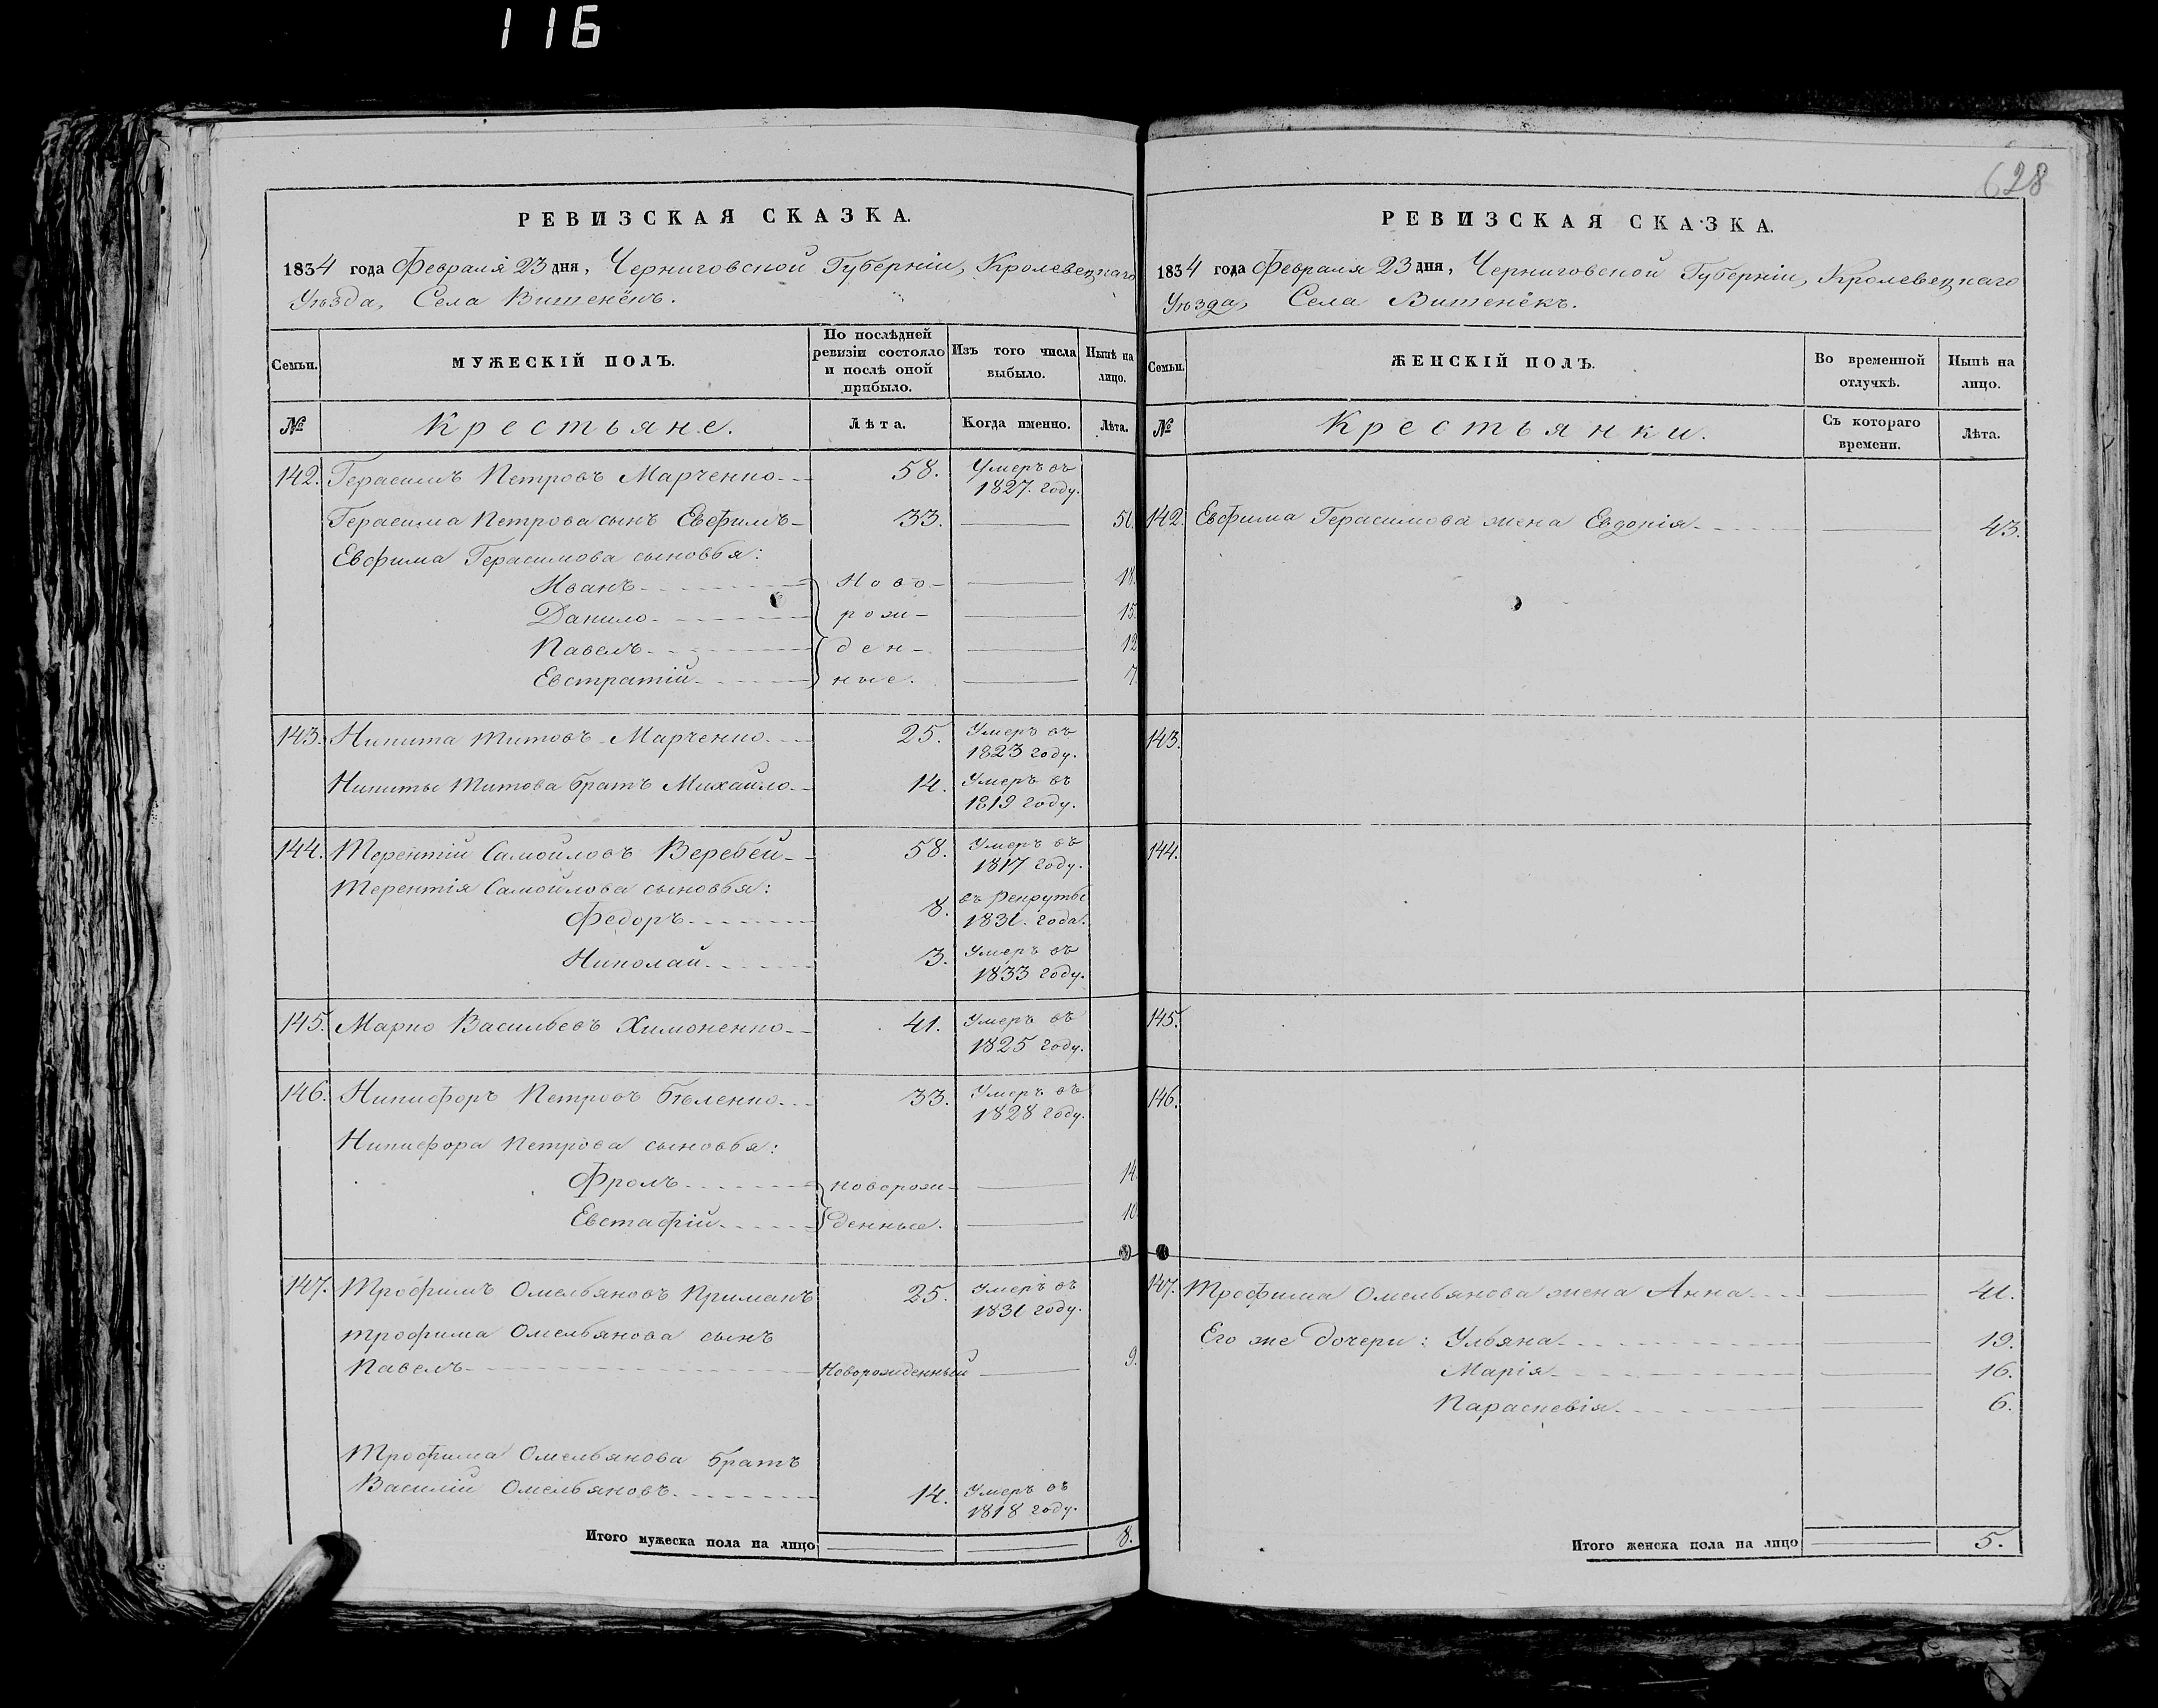 116
628
РЕВИЗСКАЯ СКАЗКА.
1834 года Февраля 23 дня, Черниговской Губерніи, Кролевецкаго
Уѣзда, Села Вишенёкъ.
Семьи.
МУЖЕСКІЙ ПОЛЪ.
По послѣдней ревизіи состояло и послѣ оной прибыло.
Изъ того числа выбыло.
Нынѣ на лицо.
№
Крестьяне.
Лѣта.
Когда именно.
Лѣта.
142. Герасимъ Петровъ Марченко 58. Умеръ въ 1827. году.
Герасима Петрова сынъ Евфимъ 33. 51.
Евфима Герасимова сыновья:
Иванъ Ново- 18.
Данило рож- 15.
Павелъ ден- 12
Евстратій ные. 7.
143. Никита Титовъ Марченко. 25. Умеръ въ 1823 году.
Никиты Титова братъ Михайло. 14. Умеръ въ 1819 году.
144. Терентій Самойловъ Веребей 58. Умеръ въ 1817 году.
Терентія Самойлова сыновья:
Федоръ 8. въ Рекрутѣ 1831. года.
Николай 3. Умеръ въ 1833 году.
145. Марко Васильевъ Химоненко 41. Умеръ въ 1825 году.
146. Никифоръ Петровъ Бѣленко. 33. Умеръ въ 1828 году.
Никифора Петрова сыновья:
Фролъ новорож- 14.
Евстафій денные. 10.
147. Трофимъ Омельяновъ Приманъ 25. Умеръ въ 1831 году.
Трофима Омельянова сынъ
Павелъ Новорожденный 9.
Трофима Омельянова братъ
Василій Омельяновъ. 14. Умеръ въ 1818 году.
Итого мужеска пола на лицо 8.
РЕВИЗСКАЯ СКАЗКА.
1834 года Февраля 23 дня, Черниговской Губерніи, Кролевецкаго
Уѣзда, Села Вишенёкъ.
Семьи.
ЖЕНСКІЙ ПОЛЪ.
Во временной отлучкѣ.
Нынѣ на лицо.
№
Крестьянки.
Съ котораго времени.
Лѣта.
142. Евфима Герасимова жена Евдокія. 43.
143.
144.
145.
146.
147. Трофима Омельянова жена Анна 41.
Его же дочери: Ульяна 19.
Марія 16.
Параскевія 6.
Итого женска пола на лицо 5.